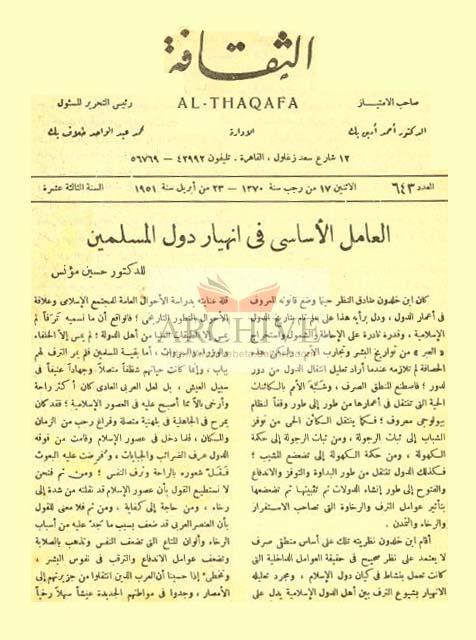 الثقافة
AL-THAQAFA
صاحب الامتياز
رئيس التحرير المسئول
الدكتور أحمد أمين بك
الادارة
محمد عبد الواحد خلاف بك
١٢ شارع سعد زغلول ، القاهرة . تليفون ٤٢٩٩٢ — ٥٦٧٦٩
العدد ٦٤٣
الاثنين ١٧ من رجب سنة ١٣٧٠ — ٢٣ من أبريل سنة ١٩٥١
السنة الثالثة عشرة
العامل الأساسى فى انهيار دول المسلمين
للدكتور حسين مؤنس
كان ابن خلدون صادق النظر حينما وضع قانونه المعروف
فى أعمار الدول ، ودل برأيه هذا على علم بتاريخ الدول
الإسلامية ، وقدرة نادرة على الإحاطة والشمول واستخراج
« العبر » من تواريخ البشر وتجارب الأمم . ولكن هذه
الحصافة لم تلازمه عندما أراد تعليل انتقال الدول من دور
لدور ؛ فاصطنع المنطق الصرف ، وشبَّه الأم بالكائنات
الحية التى تنتقل فى أعمارها من طور إلى طور وفقاً لنظام
بيولوجى معروف ؛ فكما ينتقل الكائن الحى من نوفز
الشباب إلى ثبات الرجولة ، ومن ثبات الرجولة إلى حكة
الكهولة ، ومن حكمة الكهولة إلى تضعضع المشيب ؛
فكذلك الدول تنتقل من طور البداوة والتوفز والاندفاع
والفتوح إلى طور إنشاء الدولات ثم تثبيتها ثم تضعضعها
بتأثير عوامل الترف والرخاوة التى تصاحب الاستقرار
والرخاء والتمدن .
أقام ابن خلدون نظريته تلك على أساس منطقى صرف
لا يعتمد على نظر صحيح فى حقيقة العوامل الداخلية التى
كانت تعمل بنشاط فى كيان دول الإسلام ، ومجرد تعليله
الانهيار بشيوع الترف بين أهل الدول الإسلامية يدل على
قلة عنايته بدراسة الأحوال العامة للمجتمع الإسلامى وعلاقة
الأحوال بالتطور التاريخى ؛ فالواقع أن ما نسميه ترفاً لم
من أهل الدولة ؛ لم يمس إلا الخلفاء
أما بقية المسلمين فلم يمر الترف لهم
بباب ، وإنما كانت حياتهم شظفاً متصلاً وجهاداً عنيفاً فى
سبيل العيش ، بل لعل العربى العادى كان أكثر راحة
وأرخى بالاً مما أصبح عليه فى العصور الإسلامية ؛ فقد كان
يمرح فى الجاهلية فى بلهنية متصلة وفراغ رحب من الزمان
والمكان ، فلما دخل فى عصور الإسلام وقامت من فوقه
الدول عرف الضرائب والجبايات ، وفُرضت عليه البعوث
فقَلَّ شعوره بالراحة وترف النفس ؛ ومن ثم فنحن
لا نستطيع القول بأن عصور الإسلام قد نقلته من شدة إلى
رخاء ، ومن حاجة إلى كفاية ، ومن ثم فلا معنى للقول
بأن العنصر العربى قد ضعف بسبب ما تجدد عليه من أسباب
الرخاء وألوان المتاع التى تضعف النفس وتذهب بالصلابة
وتضعف عوامل الاندفاع والترقب فى نفوس البشر .
ونخطئ إذا حسبنا أن العرب الذين انتقلوا من جزيرتهم إلى
الأمصار ، وجدوا فى مواطنهم الجديدة عيشاً سهلاً رخيّاً
ARCHIVE